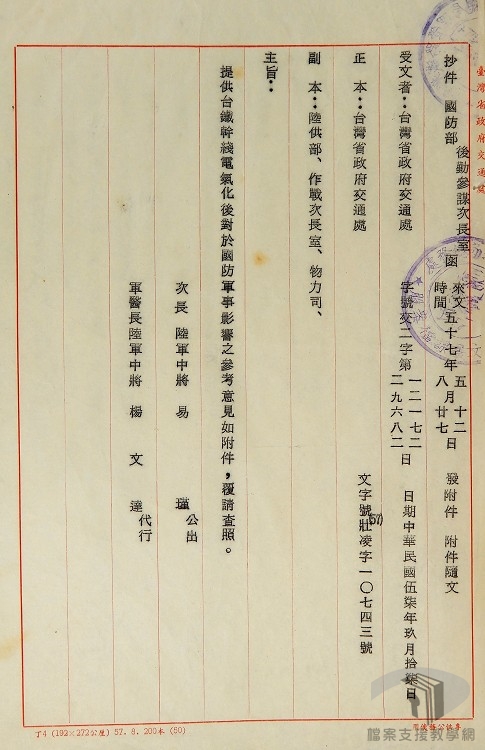 臺灣省政府交通處
抄件 國防部後勤參謀次長室 函 來文時間 五十七年 五月十二日 八月廿七日 發附件 附件隨文
受文者：台灣省政府交通處 字號交二字第 一二一七二 二九六八二
日期中華民國伍柒年玖月拾柒日
正 本：台灣省政府交通處 文字號(57)壯凌字一〇七四三號
副 本：陸供部、作戰次長室、物力司、
主旨：
提供台鐵幹綫電氣化後對於國防軍事影響之參考意見如附件，覆請查照。
次長 陸軍中將 易 瑾 公出
軍醫長陸軍中將 楊 文 達 代行
丁4 (192×272公厘) 57. 8. 200本 (50)
檔案支援教學網